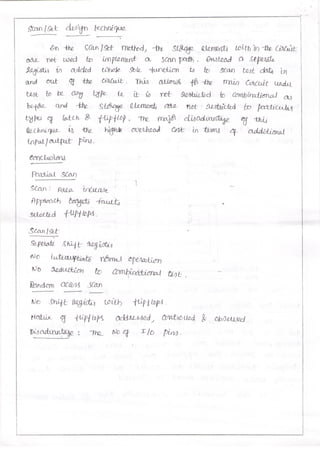 Scan/Set design technique
In the Scan/Set method, the storage elements with in the circuit
are not used to implement a scan path. Instead a seperate
register is added whose sole function is to scan test data in
and out of the circuit. This allows for the main circuit under
test to be any type ie it is not restricted to combinational as
before and the storage elements are not restricted to particular
types of latch & flipflop. The major disadvantage of this
technique is the high overhead cost in terms of additional
input/output pins.
Conclusions
Partial Scan
Scan: Area increase
Approach targets faults
selected flipflops.
Scan/set
Seperate shift register
No interrupts normal operation
No reduction to combinational test.
Random access scan
No shift register with flipflops.
Matrix of flipflops addressed, controlled & observed.
Disadvantage : The No of I/o pins.